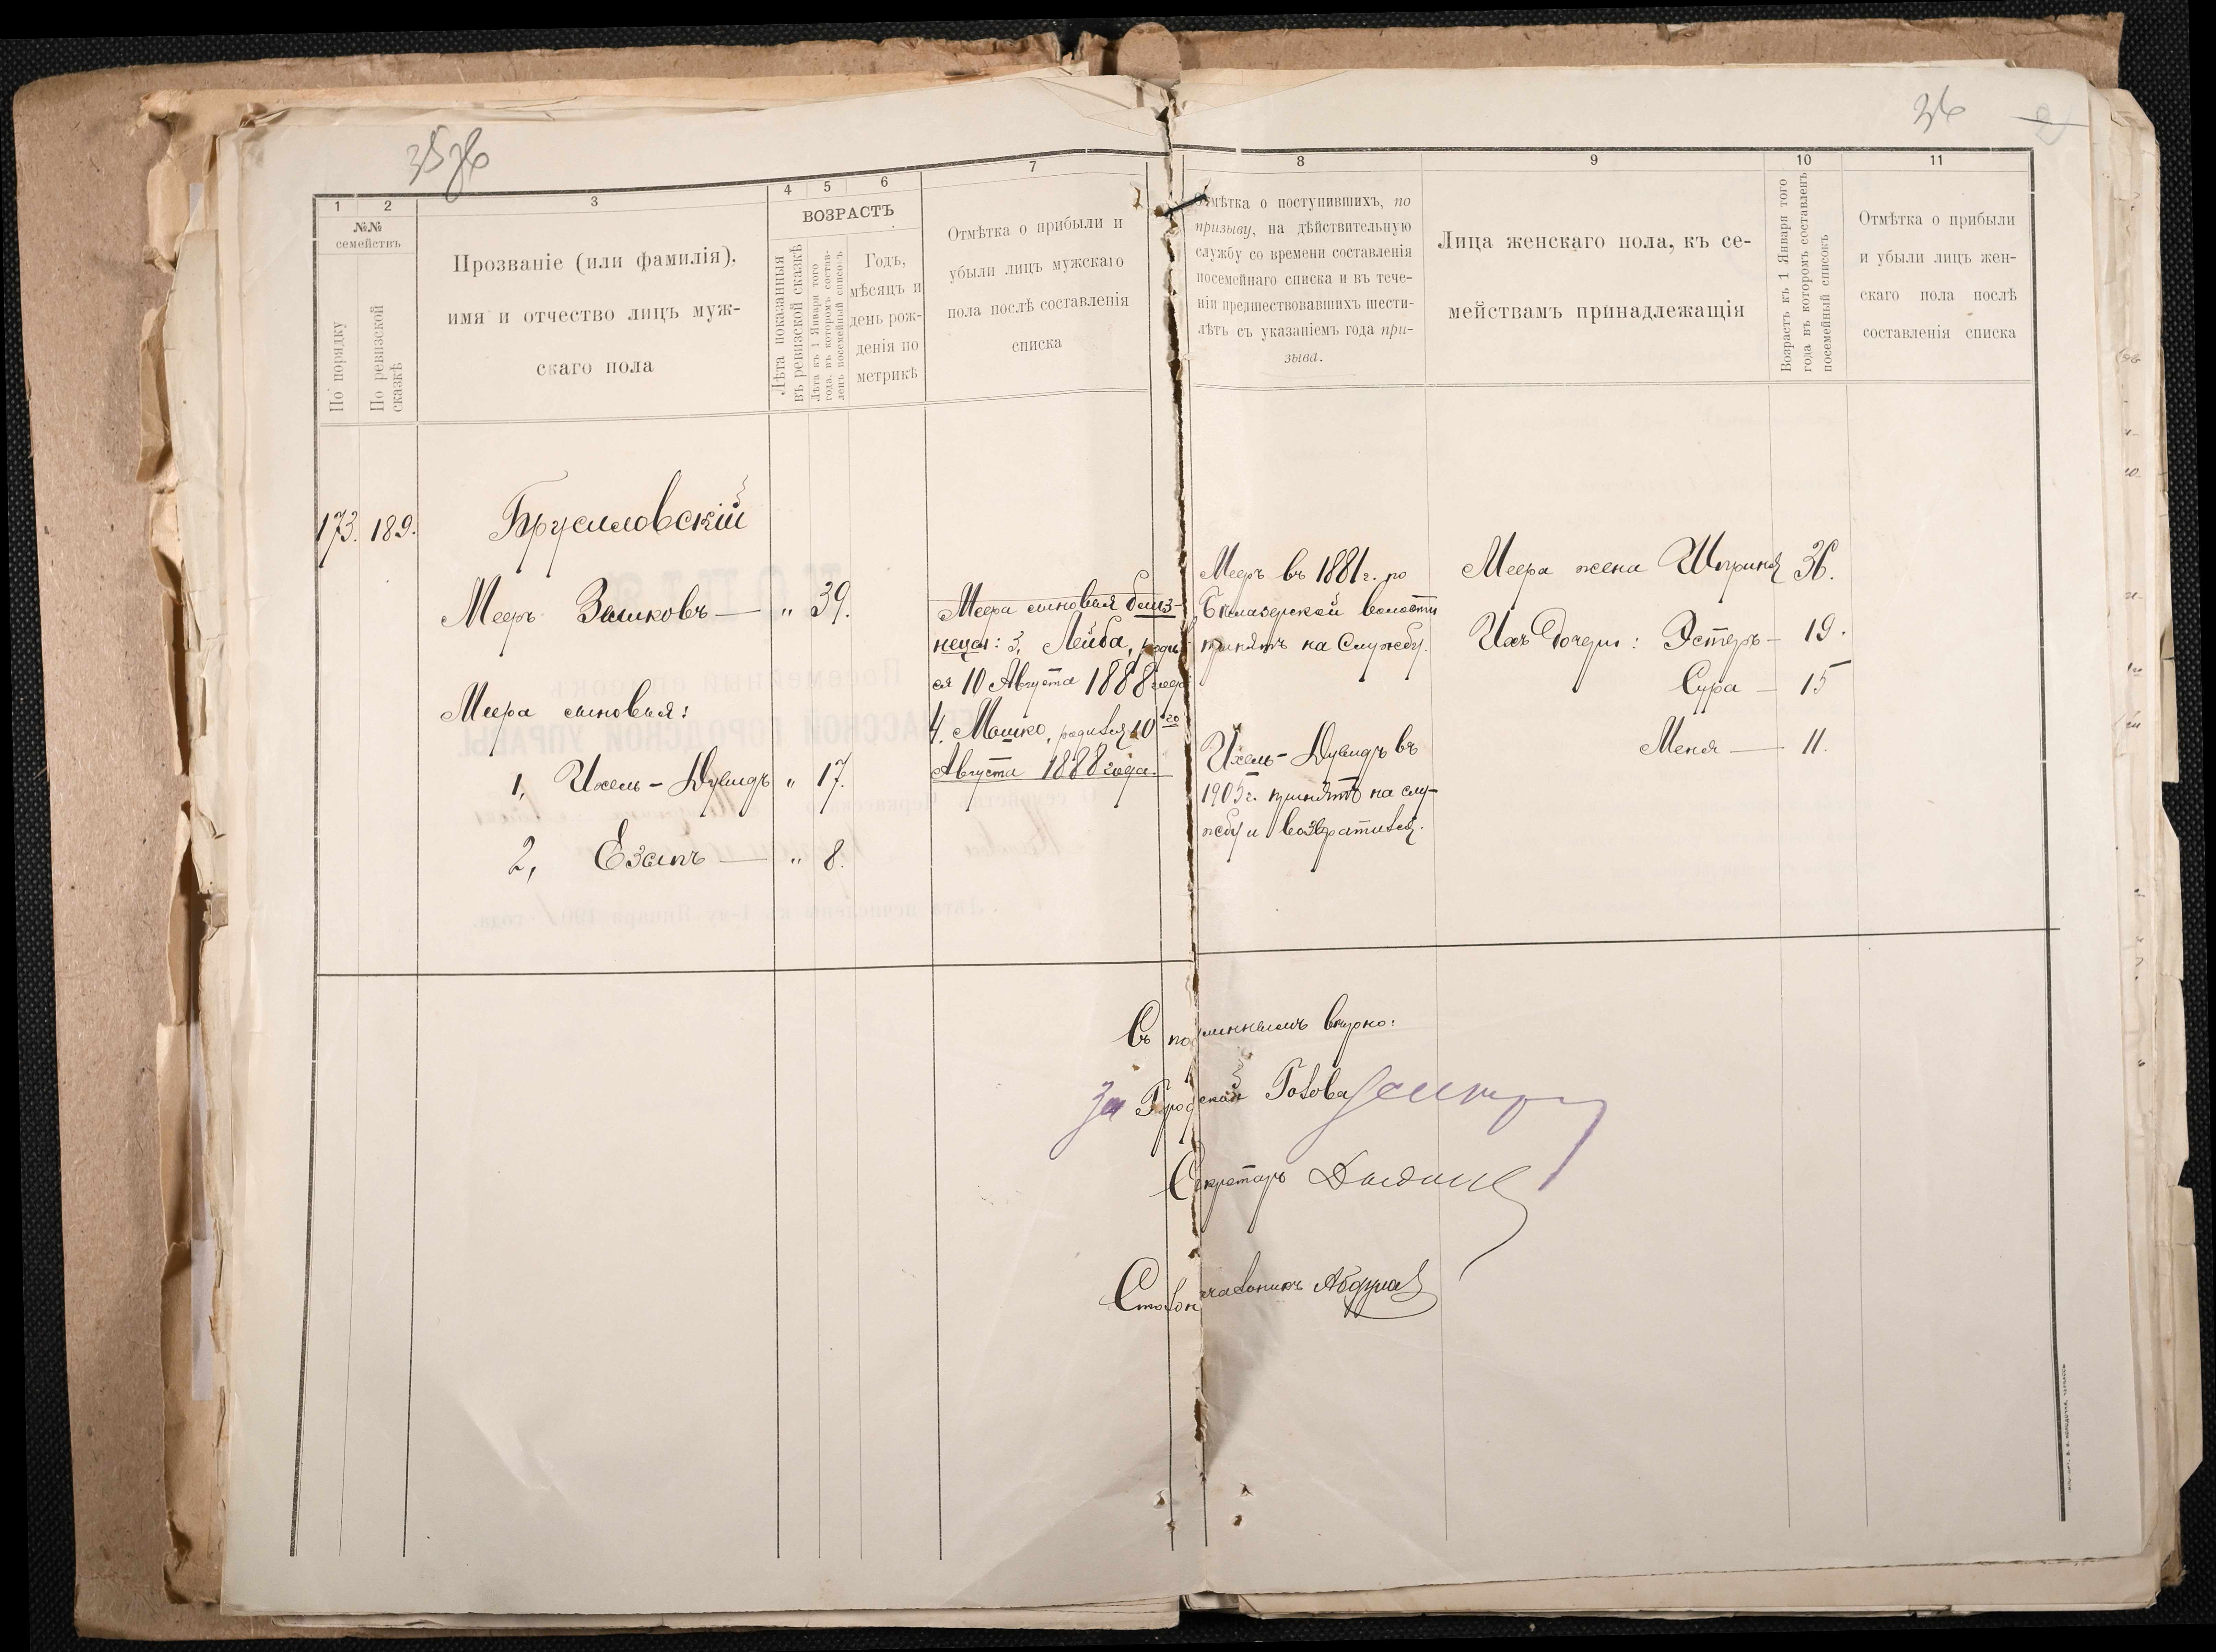 35 36
1 2 3 4 5 6 7
№№
семействъ
По порядку
По ревизской
сказкѣ
Прозваніе (или фамилія),
имя и отчество лицъ муж-
скаго пола
ВОЗРАСТЪ
Лѣта показанныя
въ ревизской сказкѣ
Лѣта къ 1 Января того
года, въ которомъ состав-
ленъ посемейный списокъ
Годъ,
мѣсяцъ и
день рож-
денія по
метрикѣ
Отмѣтка о прибыли и
убыли лицъ мужскаго
пола послѣ составленія
списка
173. 189. Брусиловскій
Мееръ — „ 39.
Меера сыновья:
1, Ихель-Дувидъ „ 17.
2, — „ 8.
Меера сыновья близ-
нецы: 3, Лейба, родил
ся 10 Августа 1888 года
4. Мошко, родился 10го
Августа 1888 года.
36
8 9 10 11
Отмѣтка о поступившихъ, по
призыву, на дѣйствительную
службу со времени составленія
посемейнаго списка и въ тече-
ніи предшествовавшихъ шести-
лѣтъ съ указаніемъ года при-
зыва.
Лица женскаго пола, къ се-
мействамъ принадлежащія
Возрастъ къ 1 Января того
года въ которомъ составленъ
посемейный списокъ
Отмѣтка о прибыли
и убыли лицъ жен-
скаго пола послѣ
составленія списка
Мееръ въ 1881 г. по
Бѣлозерской волости
принятъ на Службу.
Ихель-Дувидъ въ
1905 г. принятъ на слу-
жбу и возвратился.
Меера жена Шпринця 36.
Ихъ дочери: Эстеръ — 19.
Сура — 15
Меня — 11.
Съ подлиннымъ вѣрно:
За Городской Голова
Секретарь
Столоначальникъ